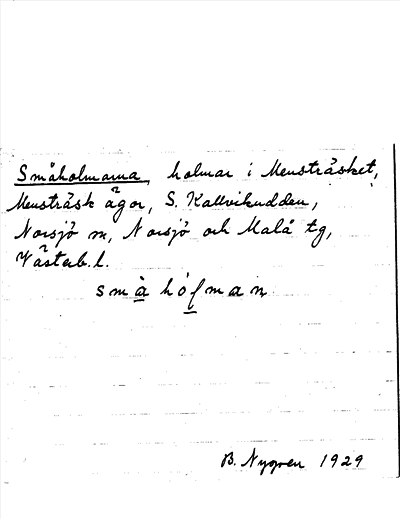 Småholmarna, holmar i Mensträsket,
Mensträsk ägor, S. Kallvikudden,
Norsjö sn, Norsjö och Malå tg,
Västerb. l.
små hólman
B. Nygren 1929